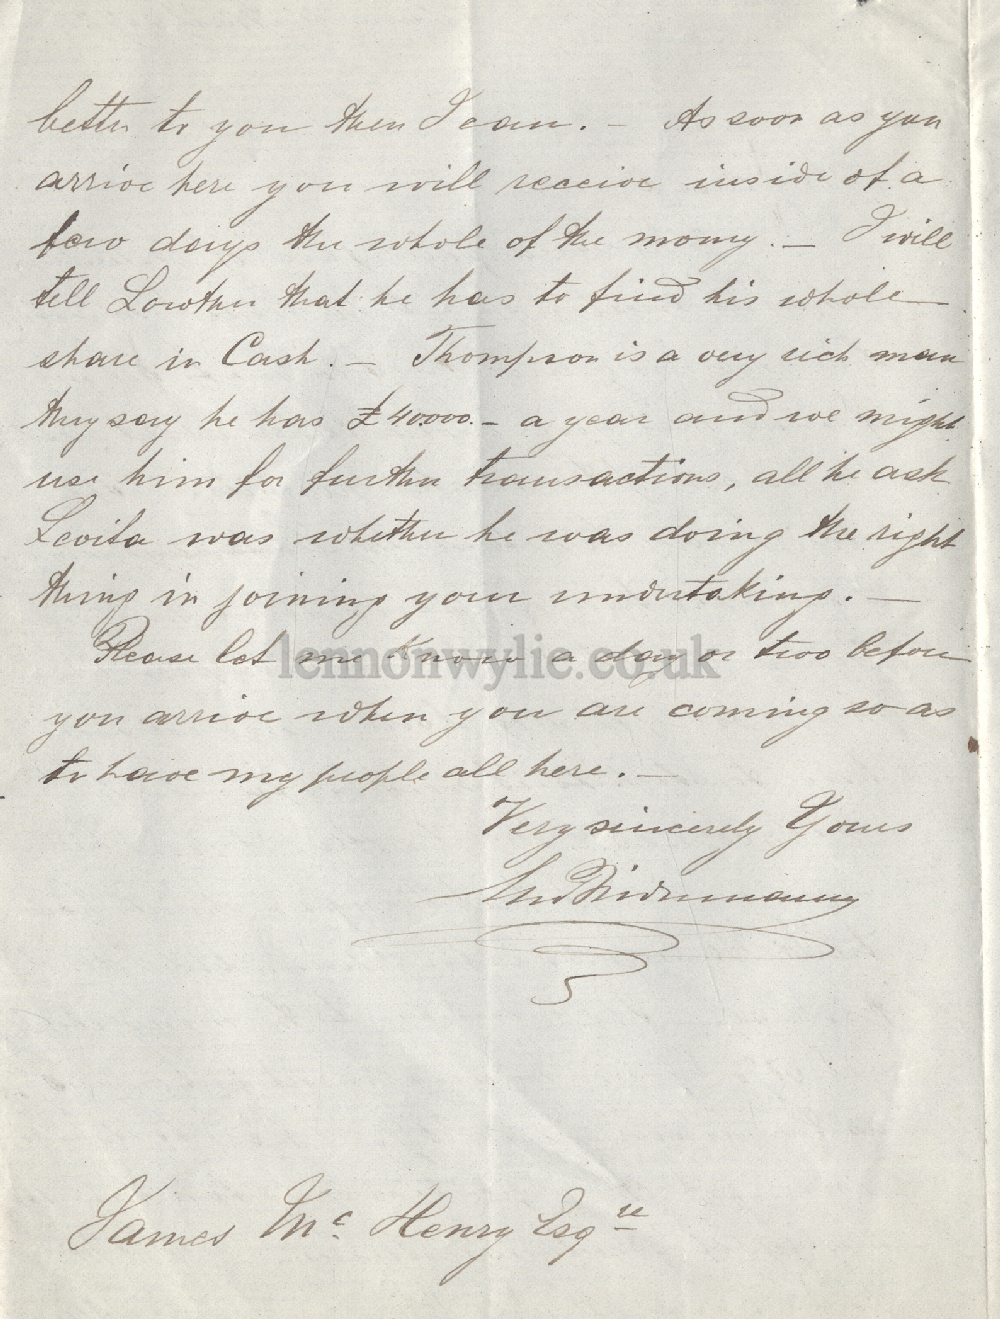 better to you then I can. — As soon as you
arrive here you will receive inside of a
few days the whole of the money. — I will
tell Lowther that he has to find his whole
share in Cash. — Thompson is a very rich man
they say he has £40.000. — a year and we might
use him for further transactions, all he ask
Levita was whether he was doing the right
thing in joining your undertaking. —
Please let me know a day or two before
you arrive when you are coming so as
to have my people all here. —
Very sincerely Yours
James Mc. Henry Esqre
lennonwylie.co.uk